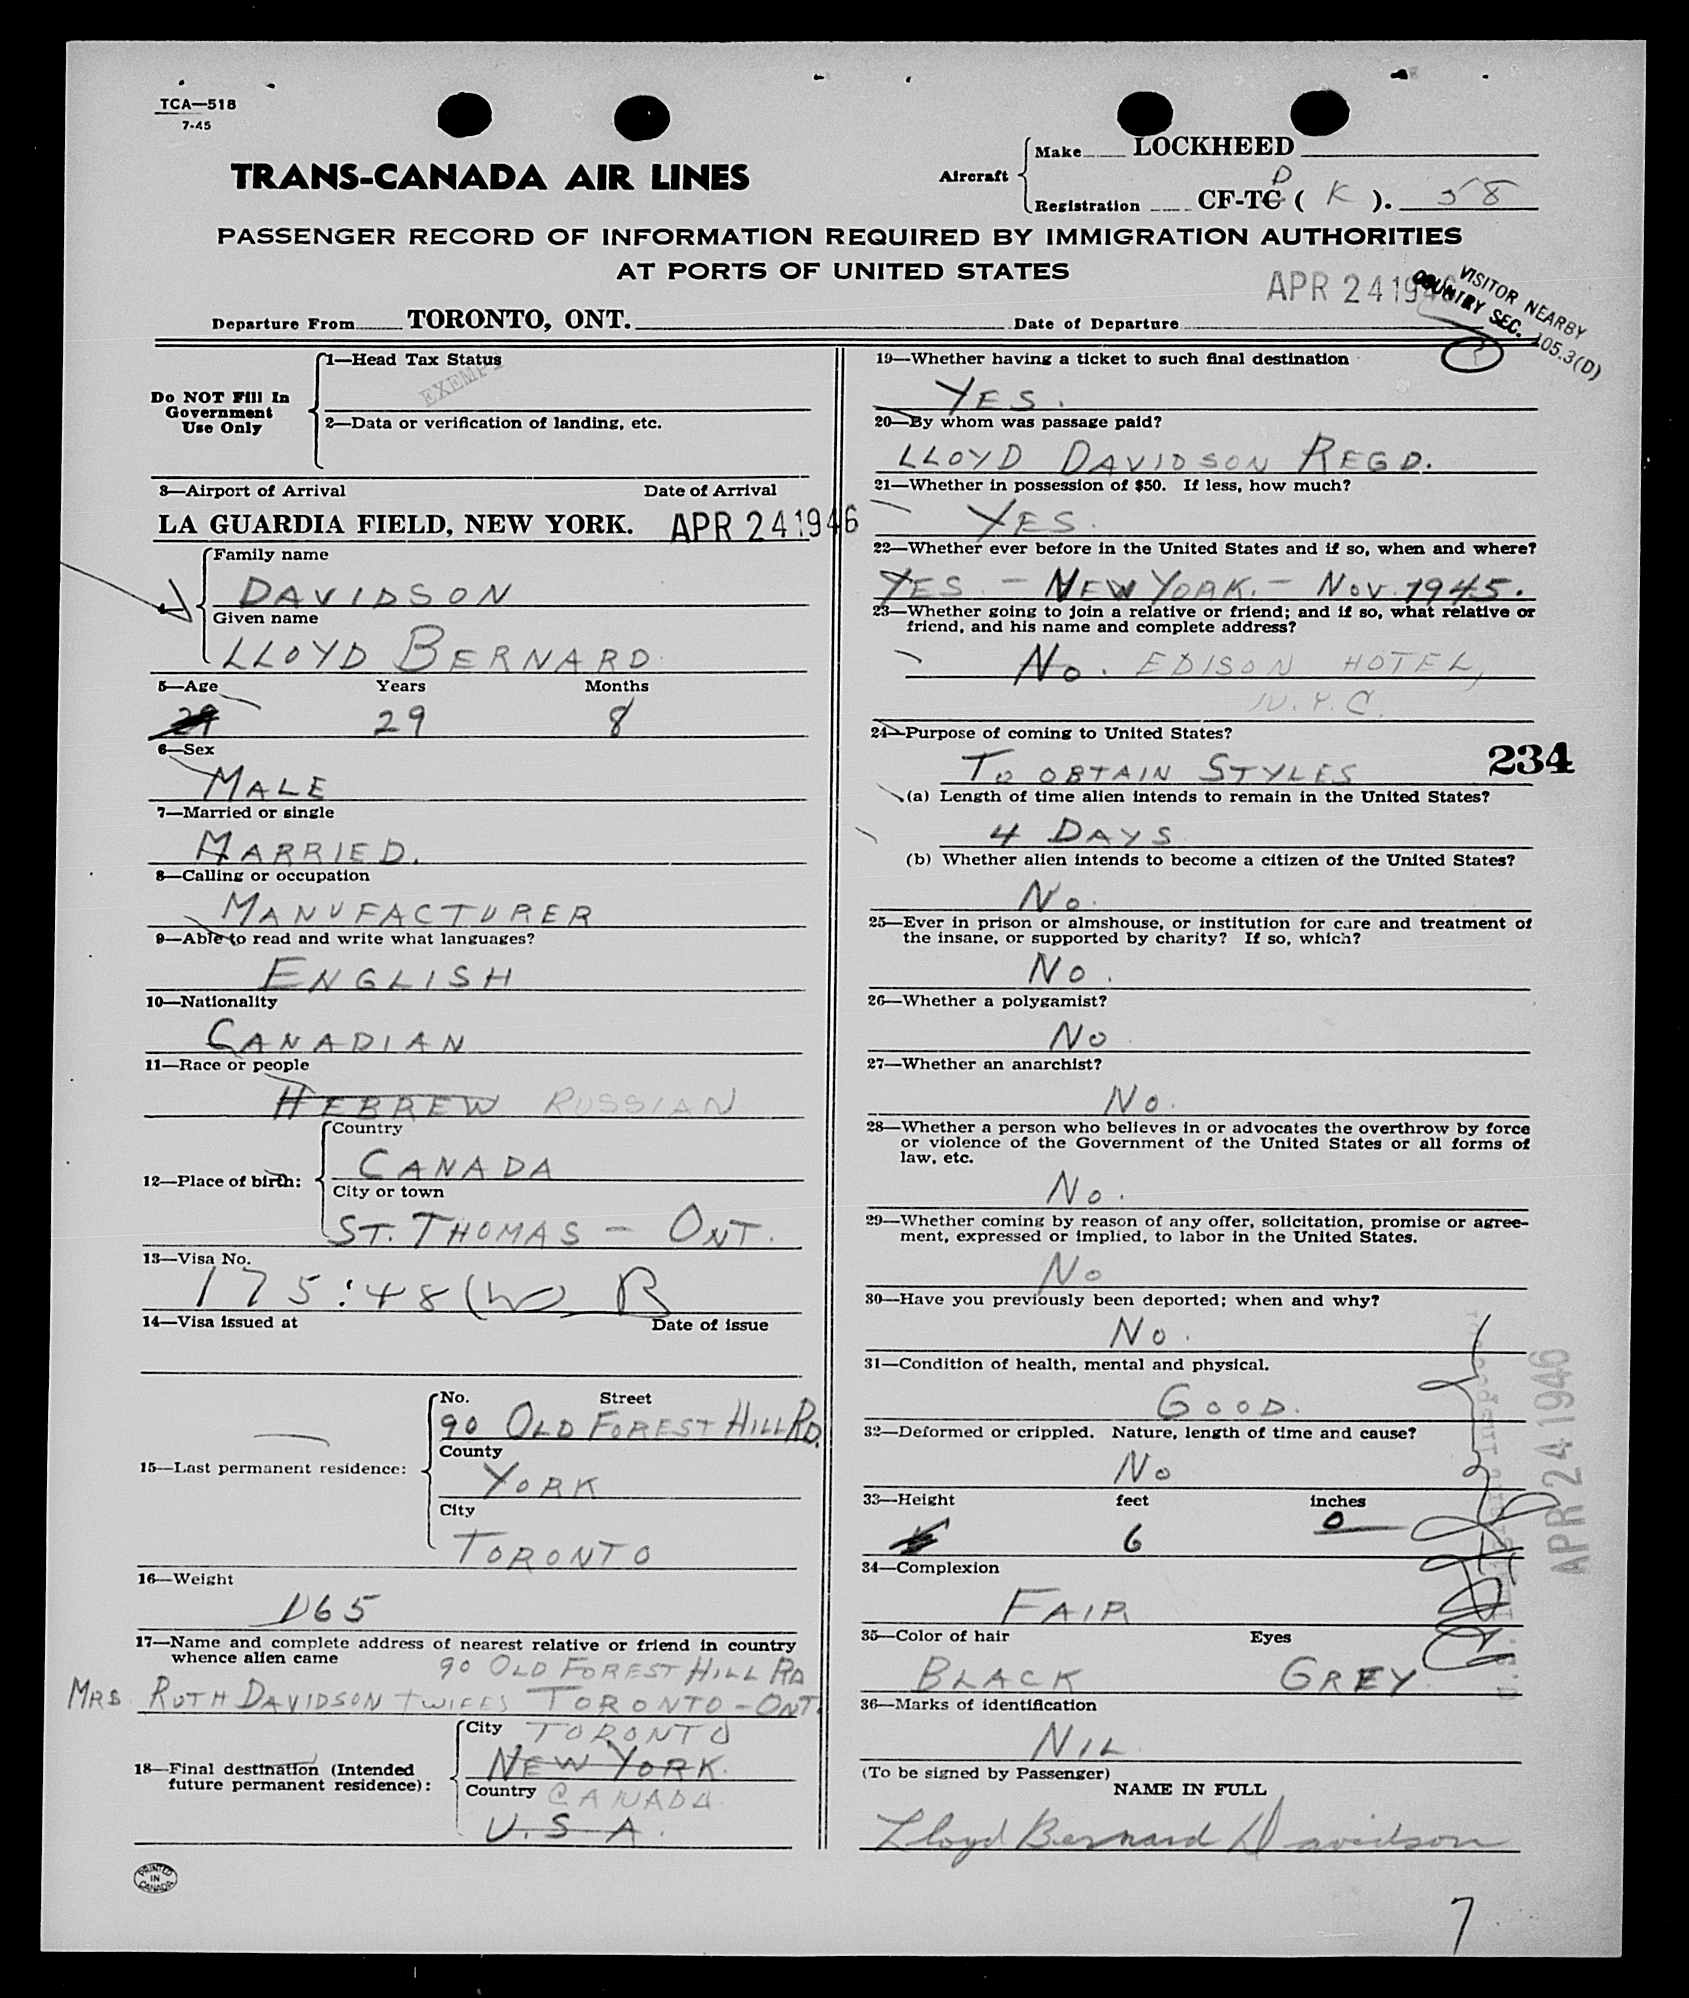 TCA—518
7-45
TRANS-CANADA AIR LINES
Aircraft
Make LOCKHEED
D
Registration CF-TC ( K ). 58
PASSENGER RECORD OF INFORMATION REQUIRED BY IMMIGRATION AUTHORITIES
AT PORTS OF UNITED STATES
APR 24 1946
VISITOR NEARBY
COUNTRY SEC. 105.3(D)
Departure From TORONTO, ONT.
Date of Departure
Do NOT Fill In
Government
Use Only
1—Head Tax Status
EXEMPT
2—Data or verification of landing, etc.
3—Airport of Arrival Date of Arrival
LA GUARDIA FIELD, NEW YORK. APR 24 1946
Family name
DAVIDSON
Given name
LLOYD BERNARD
5—Age Years Months
29 29 8
6—Sex
MALE
7—Married or single
MARRIED.
8—Calling or occupation
MANUFACTURER
9—Able to read and write what languages?
ENGLISH
10—Nationality
CANADIAN
11—Race or people
HEBREW RUSSIAN
12—Place of birth:
Country
CANADA
City or town
ST. THOMAS – ONT.
13—Visa No.
175:48 (W) R
14—Visa issued at Date of issue
15—Last permanent residence:
No. Street
90 OLD FOREST HILL RD.
County
YORK
City
TORONTO
16—Weight
165
17—Name and complete address of nearest relative or friend in country
whence alien came
90 OLD FOREST HILL RD
MRS. RUTH DAVIDSON TORONTO – ONT.
18—Final destination (Intended
future permanent residence):
City TORONTO
NEW YORK.
Country CANADA
U.S A.
PRINTED
IN
CANADA
19—Whether having a ticket to such final destination
YES.
20—By whom was passage paid?
LLOYD DAVIDSON REGD.
21—Whether in possession of $50. If less, how much?
YES.
22—Whether ever before in the United States and if so, when and where?
YES – NEW YORK. – NOV. 1945.
23—Whether going to join a relative or friend; and if so, what relative or
friend, and his name and complete address?
No. EDISON HOTEL,
N.Y.C.
24—Purpose of coming to United States?
To OBTAIN STYLES
234
(a) Length of time alien intends to remain in the United States?
4 DAYS
(b) Whether alien intends to become a citizen of the United States?
No.
25—Ever in prison or almshouse, or institution for care and treatment of
the insane, or supported by charity? If so, which?
No.
26—Whether a polygamist?
No
27—Whether an anarchist?
No.
28—Whether a person who believes in or advocates the overthrow by force
or violence of the Government of the United States or all forms of
law, etc.
No.
29—Whether coming by reason of any offer, solicitation, promise or agree-
ment, expressed or implied, to labor in the United States.
No
30—Have you previously been deported; when and why?
No.
31—Condition of health, mental and physical.
GOOD.
32—Deformed or crippled. Nature, length of time and cause?
No
33—Height feet inches
6 0
34—Complexion
FAIR
35—Color of hair Eyes
BLACK GREY
36—Marks of identification
NIL
APR 24 1946
(To be signed by Passenger)
NAME IN FULL
Lloyd Bernard Davidson
7